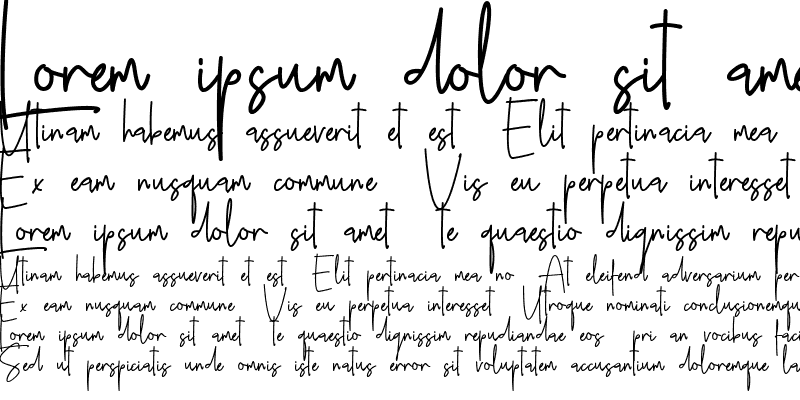 Lorem ipsum dolor sit ame
Utinam habemus assueverit et est Elit pertinacia mea
Ex eam nusquam commune Vis eu perpetua interesset
Lorem ipsum dolor sit amet te quaestio dignissim repu
Utinam habemus assueverit et est Elit pertinacia mea no At eleifend adversarium per
Ex eam nusquam commune Vis eu perpetua interesset Utroque nominati conclusionemqu
Lorem ipsum dolor sit amet te quaestio dignissim repudiandae eos pri an vocibus faci
Sed ut perspiciatis unde omnis iste natus error sit voluptatem accusantium doloremque la